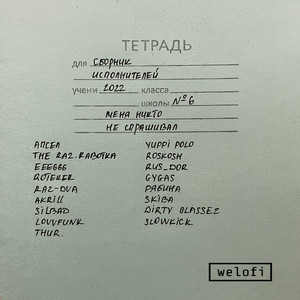 ТЕТРАДЬ
для СБОРНИК
ИСПОЛНИТЕЛЕЙ
учени 2022 класса
школы №6
МЕНЯ НИКТО
НЕ СПРАШИВАЛ
АПСЕЛ
THE RAZ.RABOTKA
EEE666
ROTEKER
RAZ-DVA
AKRILL
SILBAD
LOUVFUNK
THUR.
YUPPI POLO
ROSKOSH
RUS_DOR
GYGAS
РАБИНА
SKIBA
DIRTY GLASSEZ
SLOWKICK
welofi